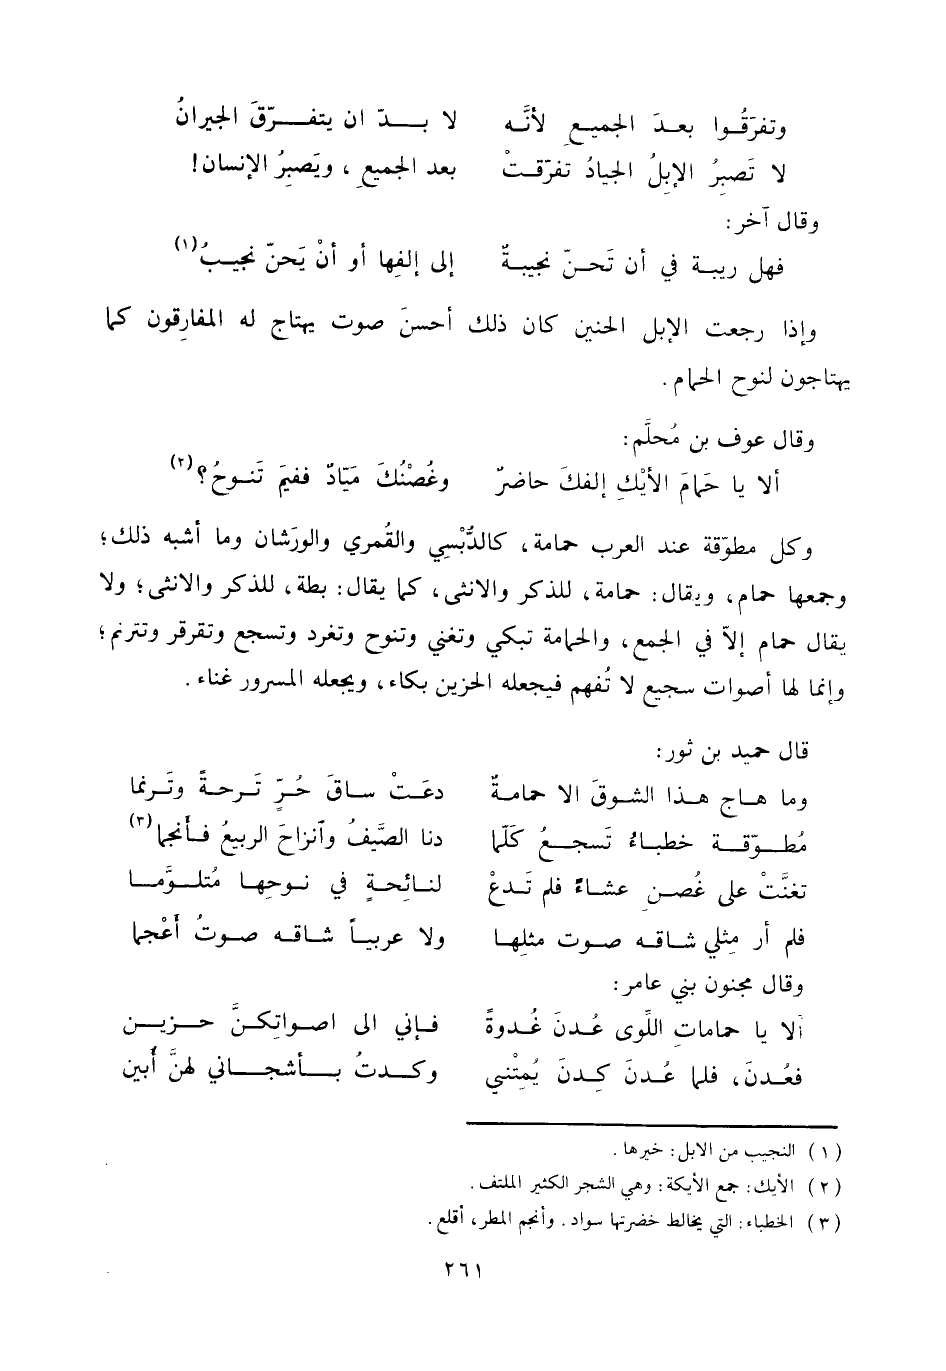 وتفرَّقُوا بعدَ الجميعِ لأنَّه لا بدّ ان يتفرّقَ الجيرانُ
لا تَصبِرُ الإبلُ الجيادُ تفرّقتْ بعد الجميعِ ، ويَصبِرُ الإنسان!
وقال آخر:
فهل ريبة في أن تَحنّ نجيبةٌ إلى إلفِها أو أنْ يَحنّ نجيبُ(١)
وإذا رجعت الإبل الحنين كان ذلك أحسنَ صوت يهتاج له المفارِقون كما
يهتاجون لنوح الحمام .
وقال عوف بن مُحلَّم:
ألا يا حَمامَ الأيْكِ إلفكَ حاضرٌ وغُصْنُكَ مَيّادٌ ففيمَ تَنوحُ؟(٢)
وكل مطوّقة عند العرب حمامة، كالدُّبْسِي والقُمري والورَشان وما أشبه ذلك؛
وجمعها حمام، ويقال: حمامة، للذكر والانثى، كما يقال: بطة، للذكر والانثى؛ ولا
يقال حمام إلاّ في الجمع، والحمامة تبكي وتغني وتنوح وتغرد وتسجع وتقرقر وتترنم؛
وانما لها أصوات سجيع لا تُفهم فيجعله الحزين بكاء، ويجعله المسرور غناء .
قال حميد بن ثور:
وما هاج هذا الشوقَ الا حمامةٌ دعَتْ ساقَ حُرٍّ تَرحةً وتَرنما
مُطوّقة خطباءُ تَسجعُ كلّما دنا الصَّيفُ وآنزاحَ الربيعُ فأنجما(٣)
تغنَّتْ على غُصنٍ عشاءً فلم تَدعْ لنائحةٍ في نوحِها مُتلوَّما
فلم أر مِثلي شاقه صوت مثلها ولا عربياً شاقه صوتُ أعْجما
وقال مجنون بني عامر:
ألا يا حمامات اللّوى عُدنَ غُدوةً فإني الى اصواتكنَّ حزين
فعُدنَ، فلما عُدنَ كِدنَ يُمتْنني وكدتُ بأشجاني لهنَّ أبين
(١) النجيب من الابل: خيرها .
(٢) الأيك: جمع الأيكة: وهي الشجر الكثير الملتف .
(٣) الخطباء: التي يخالط خضرتها سواد . وأنجم المطر، أقلع .
٢٦١